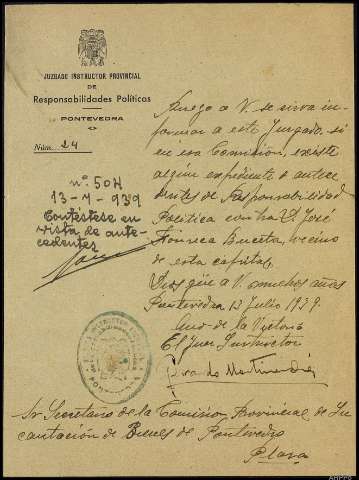 JUZGADO INSTRUCTOR PROVINCIAL
DE
Responsabilidades Políticas
PONTEVEDRA
Núm. 24
nº 504
13-7-939
Contéstese en
vista de ante-
cedentes
Ruego a V. se sirva in-
formar a este Juzgado, si
en esa Comisión, existe
algun expediente o antece
dentes de Responsabilidad
Política contra D. José
Fonseca Buceta, vecino
de esta capital.
Dios gûe a V. muchos años
Pontevedra 13 Julio 1939.
Año de la Victoria
El Juez Instructor
Sr Secretario de la Comision Provincial de In
cautación de Bienes de Pontevedra
Plaza
AHPPO